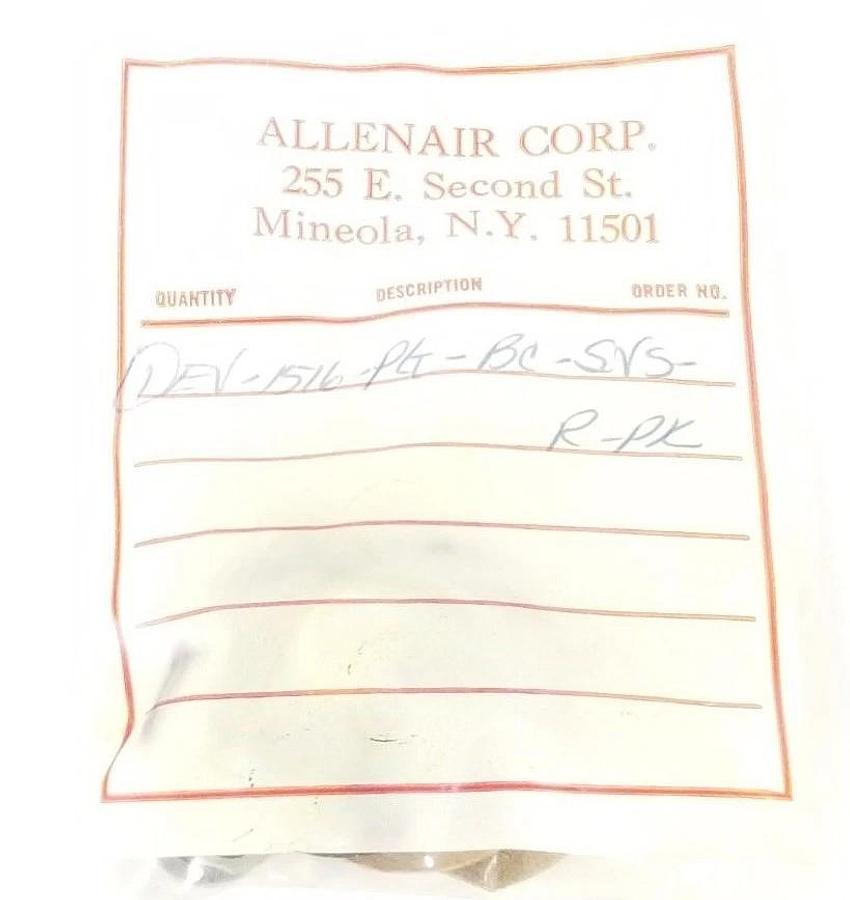 ALLENAIR CORP.
255 E. Second St.
Mineola, N.Y. 11501
QUANTITY DESCRIPTION ORDER NO.
DEV-1516-PG-BC-SVS-
R-PK